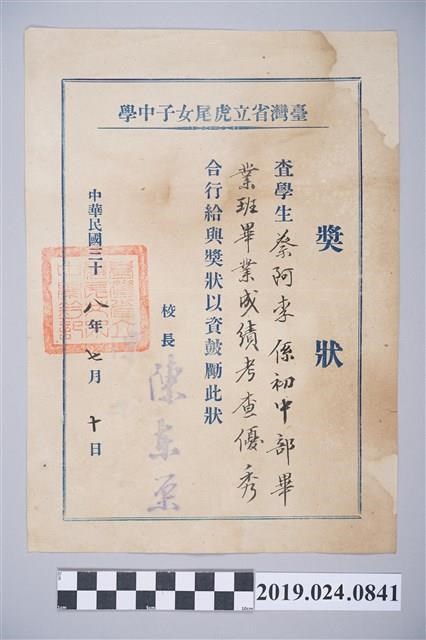 臺灣省立虎尾女子中學
獎狀
查學生蔡阿李係初中部畢
業班畢業成績考查優秀
合行給與獎狀以資鼓勵此狀
校長 陳泰
中華民國三十八年七月十日
2019.024.0841